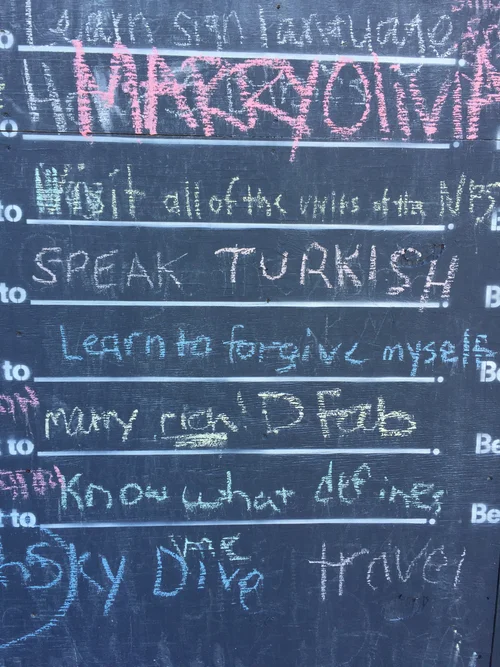 Learn sign language
o
MARRY OLIVIA
o
Visit all of the units of the NPS
to
SPEAK TURKISH
to
B
Learn to forgive myself
to
Be
marry rich! D Fab
to
Be
Know what defines
t to
Be
me
Sky Dive travel